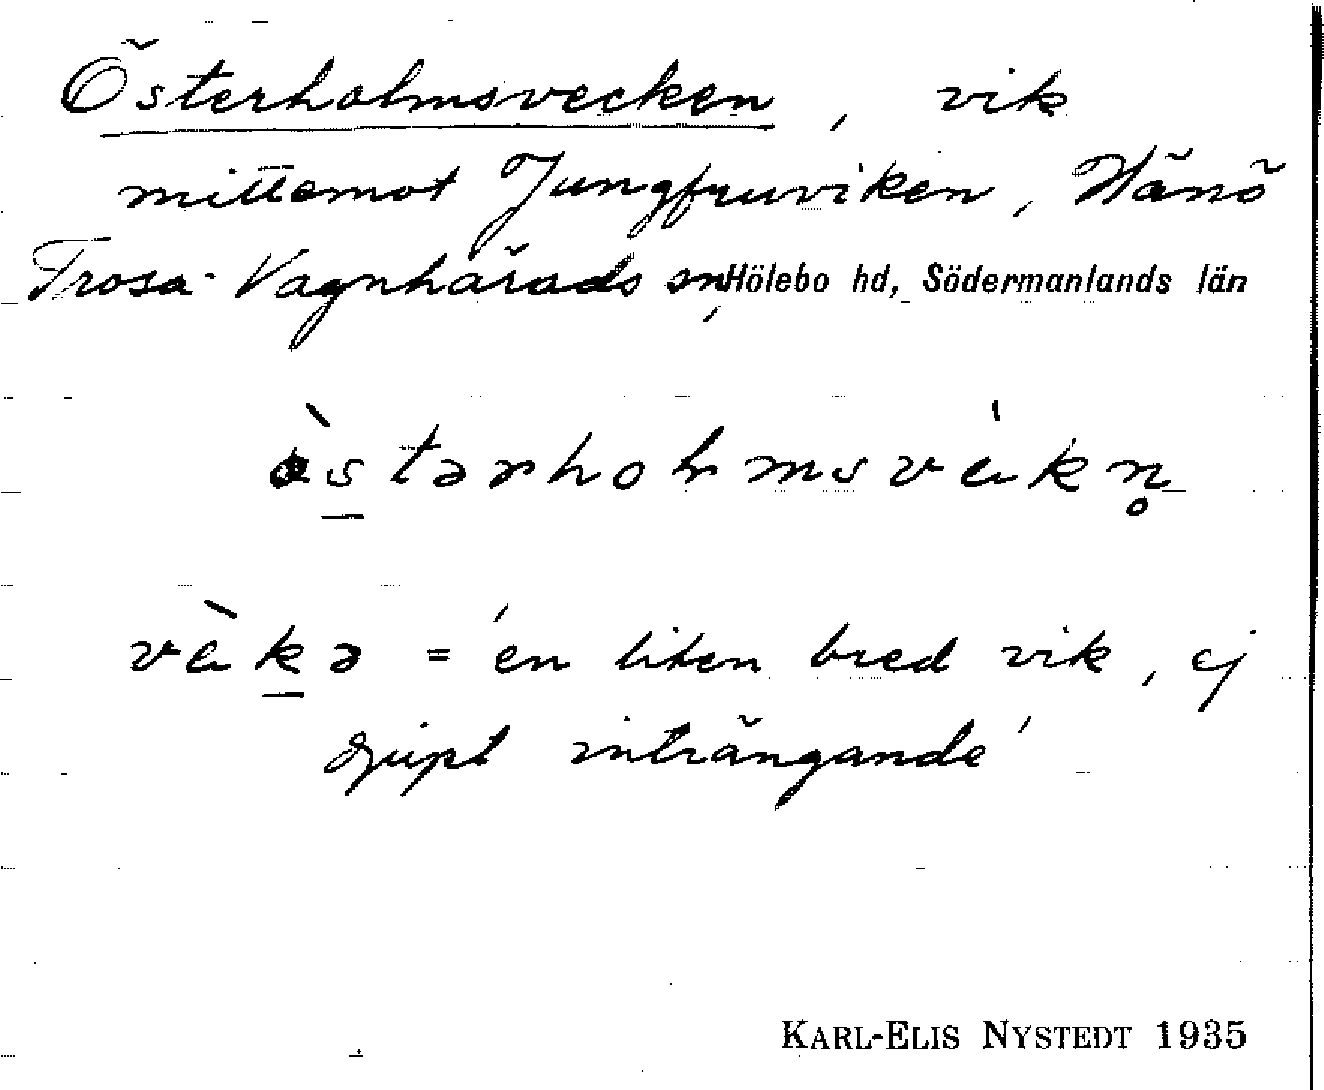 Österholmsvecken, vik
mittemot Jungfruviken, Hänö
Trosa-Vagnhärads sn, Hölebo hd, Södermanlands län
östərholmsvàkn̥
vàkə = 'en liten bred vik, ej
djupt inträngande'
KARL-ELIS NYSTEDT 1935